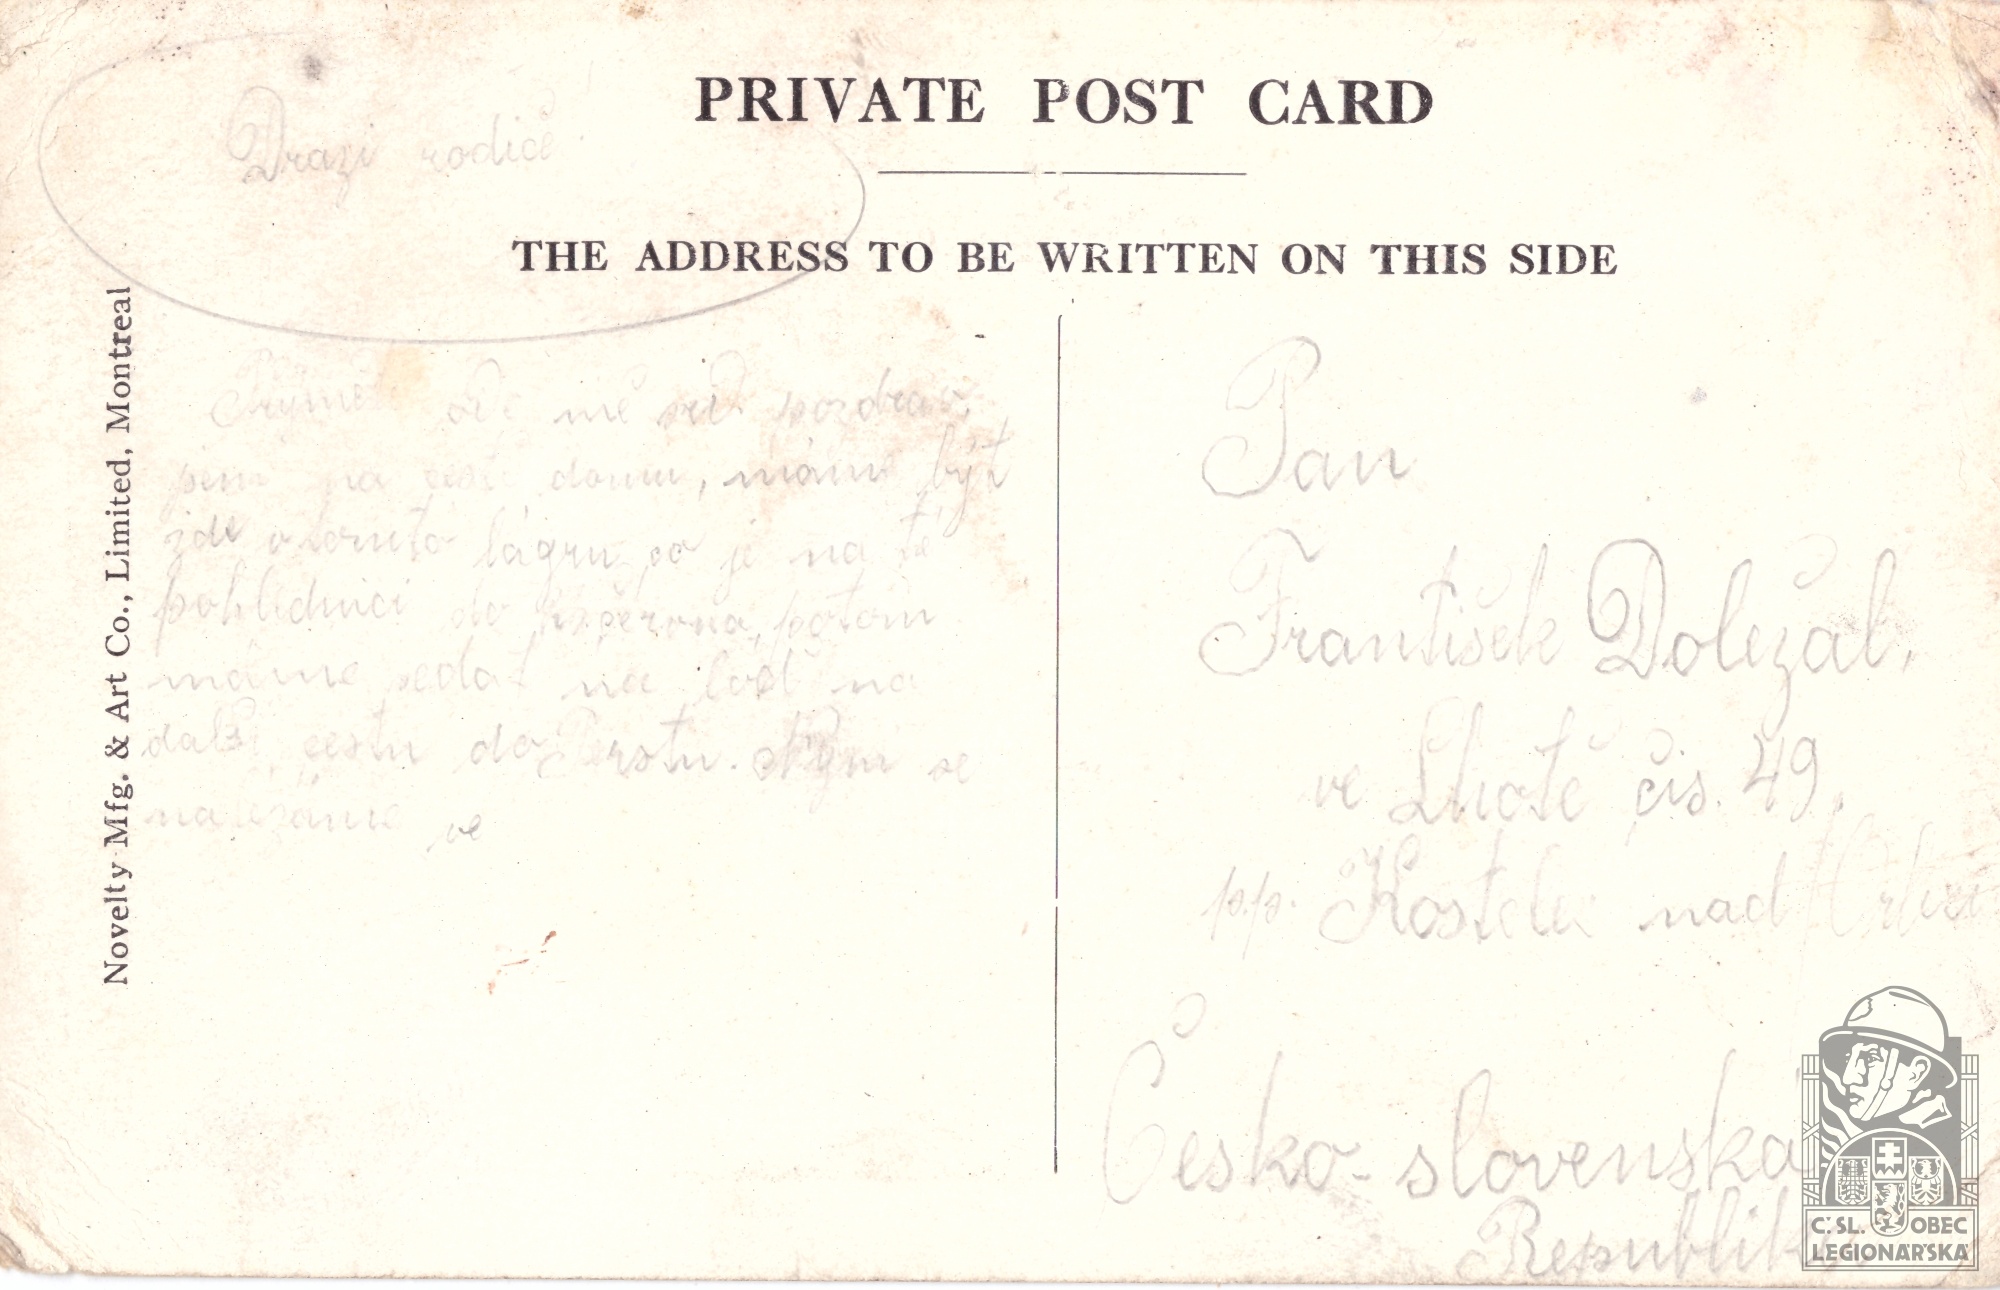 PRIVATE POST CARD
THE ADDRESS TO BE WRITTEN ON THIS SIDE
Novelty Mfg. & Art Co., Limited, Montreal
Drazi rodiče
mě pozdrav,
jsem na cestě domu, máme být
zde v tomto lágru co je na té
pohlednici do potom
máme sedat na loď na
další cestu do Terstu. se
nalézáme ve
Pan
František Doležal,
ve Lhotě čis. 49,
p.p. Kostelec nad Orlicí
Česko-slovenska
Republika
Č.SL. OBEC
LEGIONÁŘSKÁ